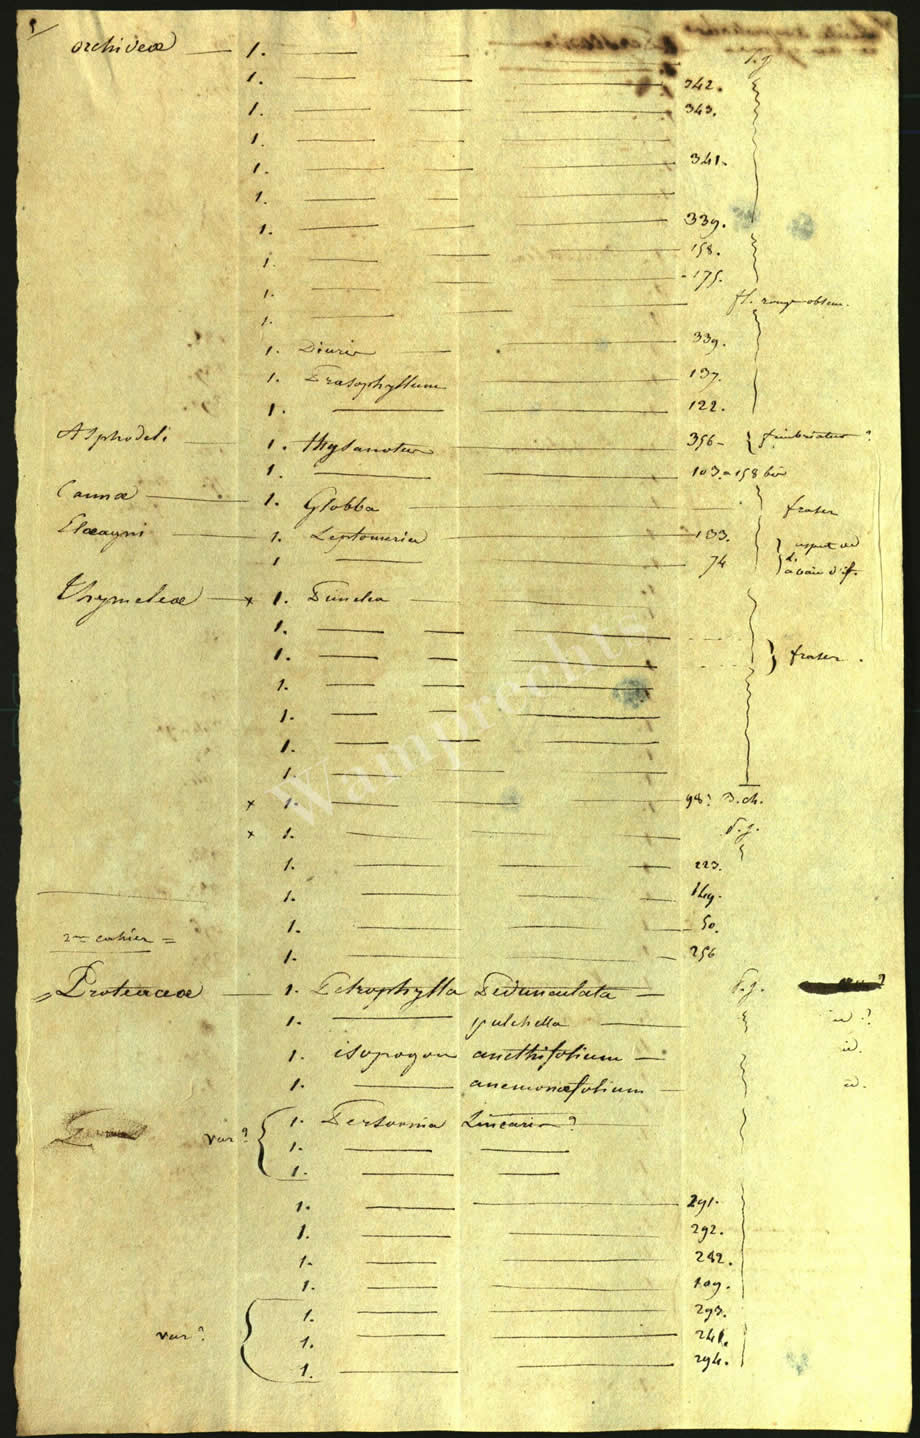 orchideæ 1.
1. 342.
1. 343.
1.
1. 341.
1.
1. 339.
1. 158.
1. 175.
1. fl. rouge obscur.
1.
1. Diuris 339.
1. Prasophyllum 137.
1. 122.
Asphodeli 1. thysanotus 356 fimbriatus ?
1. 103. 158 bis
Cannæ 1. Globba fraser
Elæagni 1. Leptomeria 133.
1 74
Thymeleæ x 1. Pimelea
1.
1. fraser.
1.
1.
1.
1.
x 1. 98?
x 1. P.J.
1. 223.
1. 149.
1. 50.
2me cahier =
1. 256
Proteaceæ 1. Petrophylla Pedunculata P.J.
1. pulchella id ?
1. isopogon anethifolium id.
1. anemonæfolium id.
var? 1. Persoonia Linearis?
1.
1.
1. 291.
1. 292.
1. 282.
1. 109.
1. 293.
var? 1. 241.
1. 294.
Wamprechts